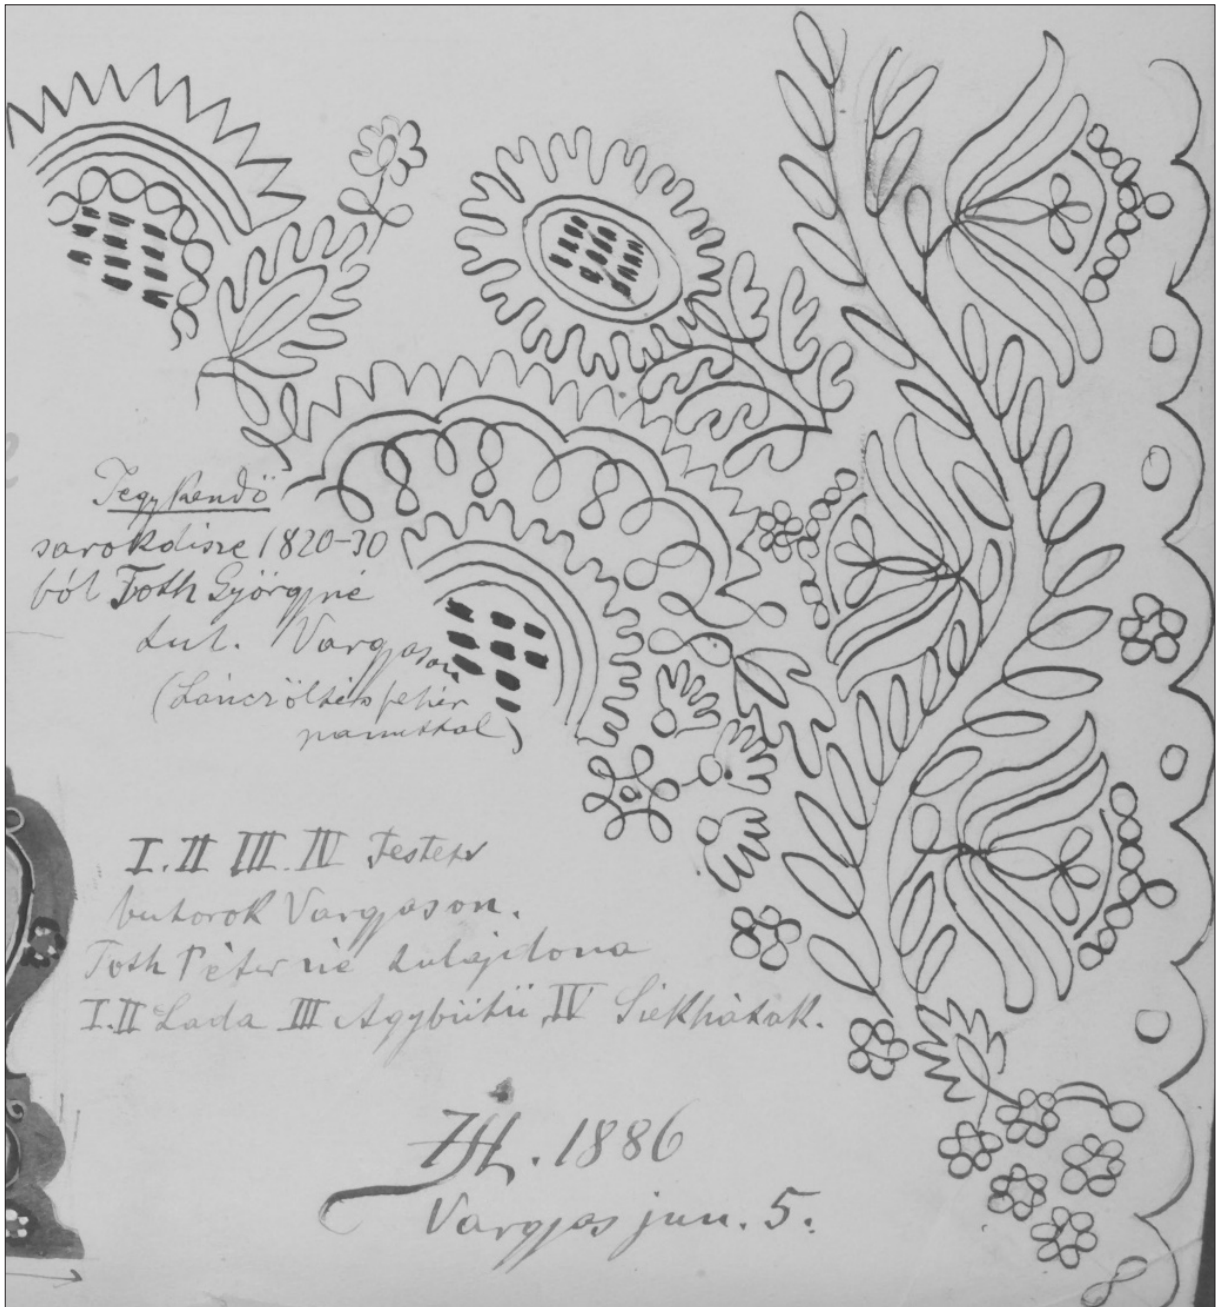 Jegykendő
sarokdisze 1820-30
ból Toth Györgyné
tul. Vargyason
(Lánczöltés fehér
pamuttal)
I. II III. IV Festett
butorok Vargyason.
Toth Péterné tulajdona
I. II Lada III Agybütü IV Székhátak.
JH. 1886
Vargyas jun. 5.